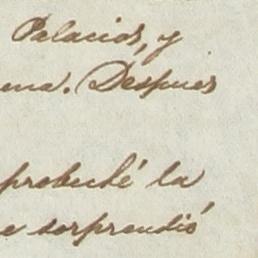 Palacios, y
ena. Despues
probeché la
e sorprendió